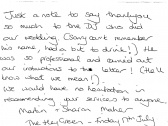 Just a note to say thankyou
so much to the DJ who did
our wedding (Sorry can't remember
his name, had a bit to drink!) He
was so professional and carried out
our instructions to the letter! (He'll
know what we mean!)
We would have no hesitation in
recommending your services to anyone
Martin & Sharon Maher
The Hey Green - Friday 17th July